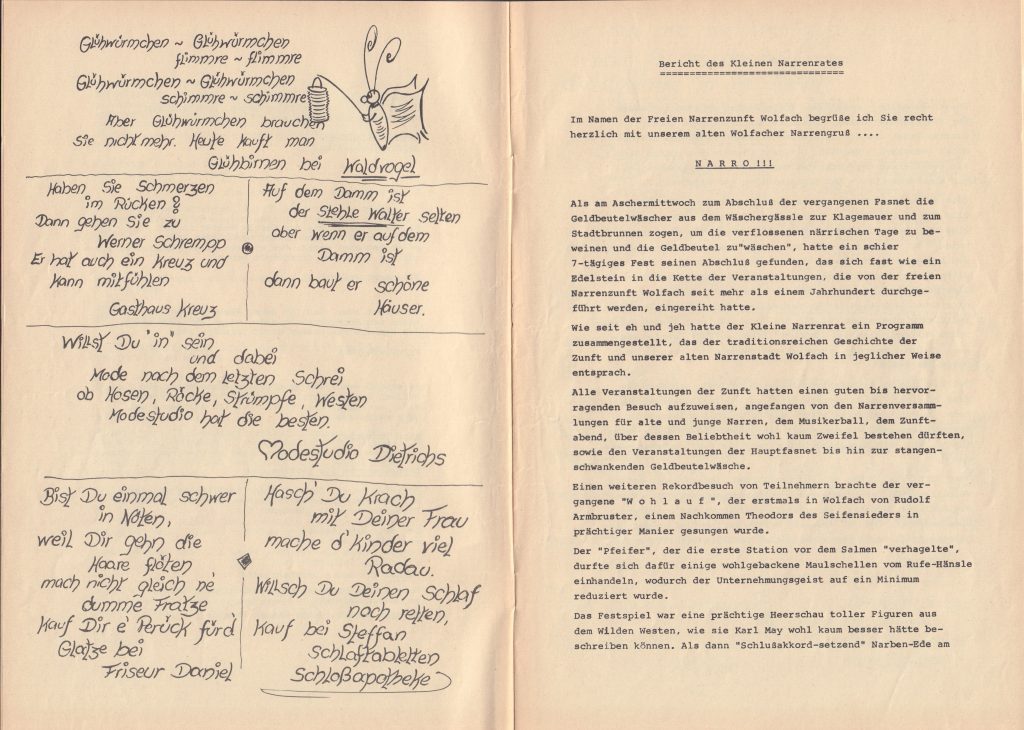 Glühwürmchen ~ Glühwürmchen
flimmre ~ flimmre
Glühwürmchen ~ Glühwürmchen
schimmre ~ schimmre
Aber Glühwürmchen brauchen
Sie nicht mehr. Heute kauft man
Glühbirnen bei Waldvogel
Haben Sie Schmerzen
im Rücken?
Dann gehen Sie zu
Werner Schrempp
Er hat auch ein Kreuz und
kann mitfühlen
Gasthaus Kreuz
Auf dem Damm ist
der Stehle Walter selten
aber wenn er auf dem
Damm ist
dann baut er schöne
Häuser.
Willst Du "in" sein
und dabei
Mode nach dem letzten Schrei
ob Hosen, Röcke, Strümpfe, Westen
Modestudio hat die besten.
Modestudio Dietrichs
Bist Du einmal schwer
in Nöten,
weil Dir gehn die
Haare flöten
mach nicht gleich ne'
dumme Fratze
Kauf Dir e' Perück für d'
Glatze bei
Friseur Daniel
Hasch' Du Krach
mit Deiner Frau
mache d' Kinder viel
Radau.
Willsch Du Deinen Schlaf
noch retten,
Kauf bei Steffan
Schlaftabletten
Schloßapotheke
Bericht des Kleinen Narrenrates
Im Namen der Freien Narrenzunft Wolfach begrüße ich Sie recht
herzlich mit unserem alten Wolfacher Narrengruß ....
N A R R O !!!
Als am Aschermittwoch zum Abschluß der vergangenen Fasnet die
Geldbeutelwäscher aus dem Wäschergässle zur Klagemauer und zum
Stadtbrunnen zogen, um die verflossenen närrischen Tage zu be-
weinen und die Geldbeutel zu"wäschen", hatte ein schier
7-tägiges Fest seinen Abschluß gefunden, das sich fast wie ein
Edelstein in die Kette der Veranstaltungen, die von der freien
Narrenzunft Wolfach seit mehr als einem Jahrhundert durchge-
führt werden, eingereiht hatte.
Wie seit eh und jeh hatte der Kleine Narrenrat ein Programm
zusammengestellt, das der traditionsreichen Geschichte der
Zunft und unserer alten Narrenstadt Wolfach in jeglicher Weise
entsprach.
Alle Veranstaltungen der Zunft hatten einen guten bis hervor-
ragenden Besuch aufzuweisen, angefangen von den Narrenversamm-
lungen für alte und junge Narren, dem Musikerball, dem Zunft-
abend, über dessen Beliebtheit wohl kaum Zweifel bestehen dürften,
sowie den Veranstaltungen der Hauptfasnet bis hin zur stangen-
schwankenden Geldbeutelwäsche.
Einen weiteren Rekordbesuch von Teilnehmern brachte der ver-
gangene "W o h l a u f ", der erstmals in Wolfach von Rudolf
Armbruster, einem Nachkommen Theodors des Seifensieders in
prächtiger Manier gesungen wurde.
Der "Pfeifer", der die erste Station vor dem Salmen "verhagelte",
durfte sich dafür einige wohlgebackene Maulschellen vom Rufe-Hänsle
einhandeln, wodurch der Unternehmungsgeist auf ein Minimum
reduziert wurde.
Das Festspiel war eine prächtige Heerschau toller Figuren aus
dem Wilden Westen, wie sie Karl May wohl kaum besser hätte be-
schreiben können. Als dann "Schlußakkord-setzend" Narben-Ede am